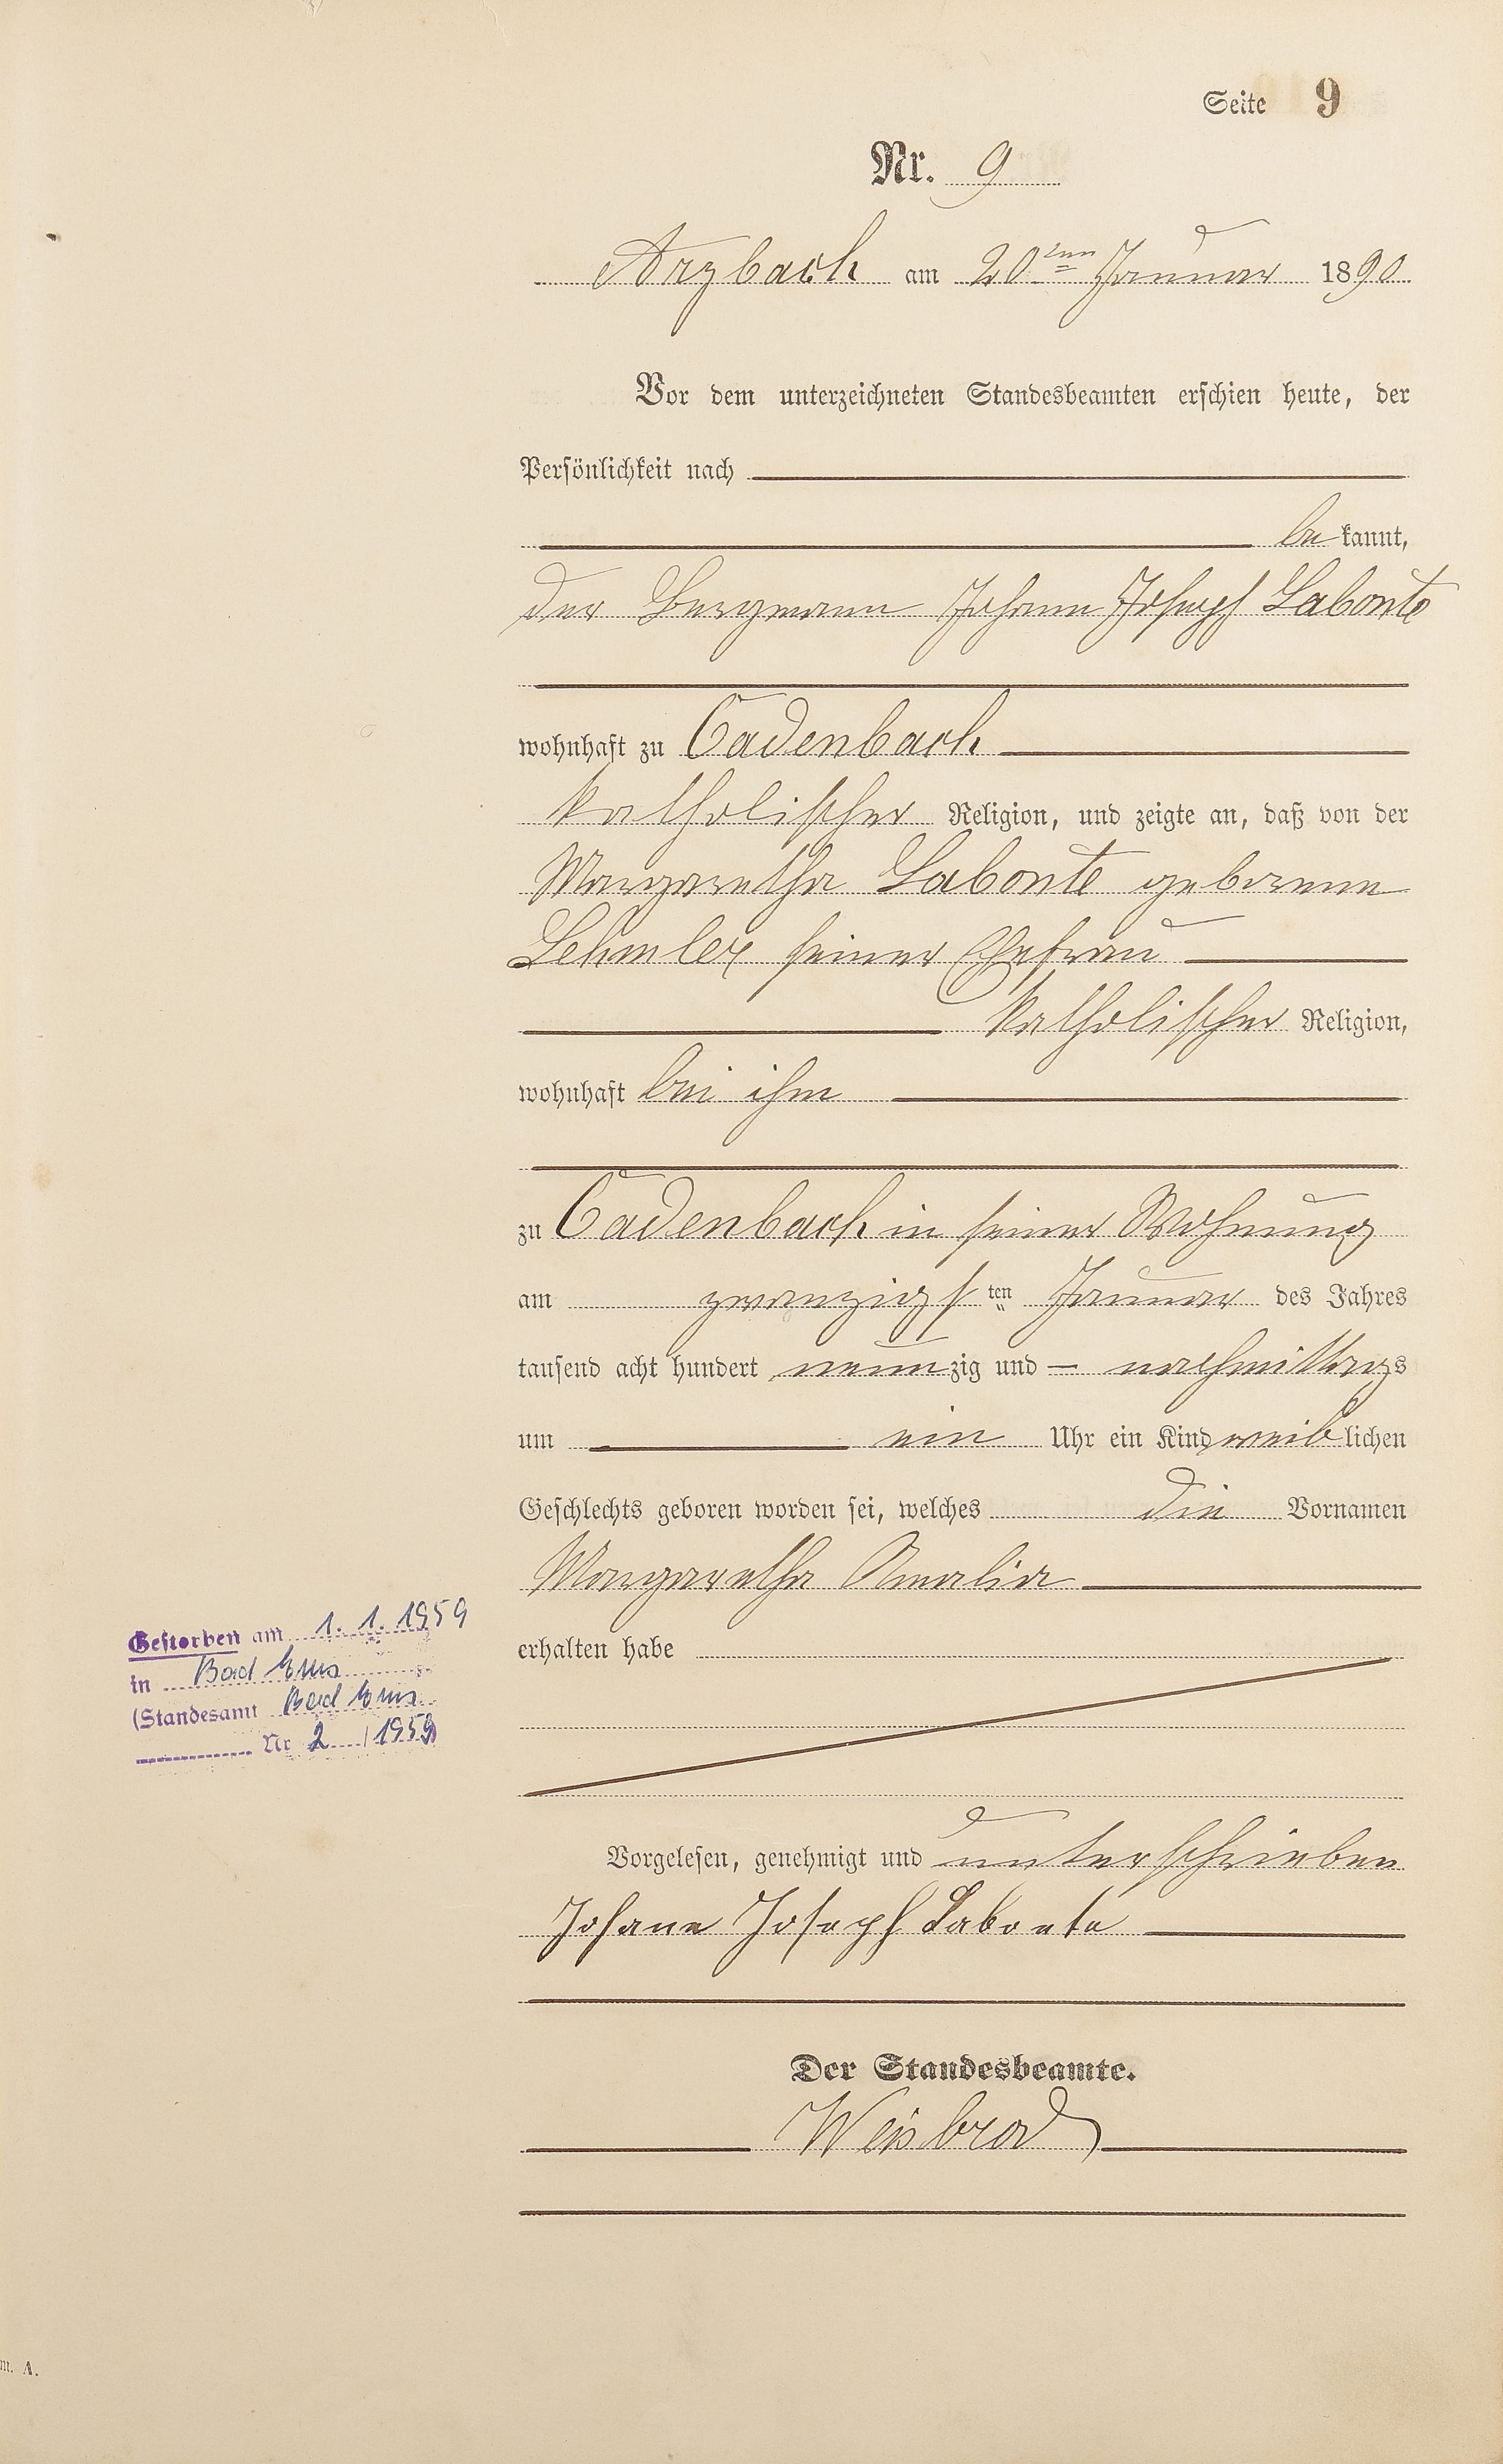 Seite 9
Nr. 9
Arzbach am 20ten Januar 1890
Vor dem unterzeichneten Standesbeamten erschien heute, der
Persönlichkeit nach
bekannt,
der Bergmann Johann Joseph Labonte
wohnhaft zu Cadenbach
katholischer Religion, und zeigte an, daß von der
Margaretha Labonte geborene
Lehmler seiner Ehefrau
katholischer Religion,
wohnhaft bei ihm
zu Cadenbach in seiner Wohnung
am zwanzigsten Januar des Jahres
tausend acht hundert neunzig und — nachmittags
um ein Uhr ein Kind weiblichen
Geschlechts geboren worden sei, welches die Vornamen
Margaretha Amalia
erhalten habe
Gestorben am 1. 1. 1959
in Bad Ems
(Standesamt Bad Ems
Nr 2 / 1959)
Vorgelesen, genehmigt und unterschrieben
Johann Joseph Labonte
Der Standesbeamte.
Weisbrod
m. A.